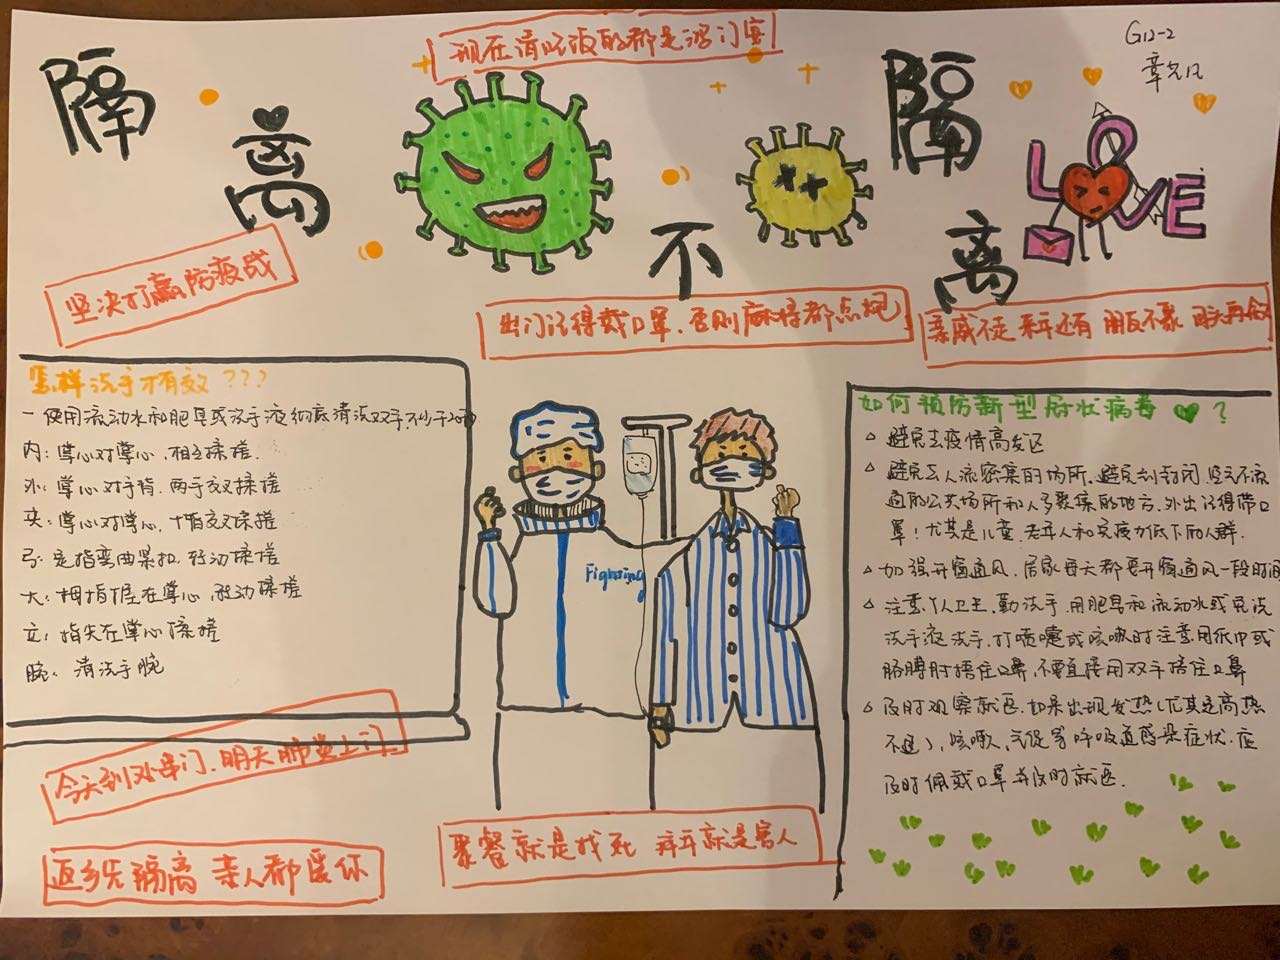 现在请吃饭的都是鸿门宴
G12-2
隔离不隔离
LOVE
坚决打赢防疫战
出门记得戴口罩、否则麻将都点炮
亲戚不走 来年还有 朋友不聚
怎样洗手才有效???
一 使用流动水和肥皂或洗手液彻底清洗双手,不少于20秒
内: 掌心对掌心,相互揉搓.
外: 掌心对手背,两手交叉揉搓
夹: 掌心对掌心,十指交叉揉搓
弓: 定指弯曲紧扣,转动揉搓
大: 拇指握在掌心,转动揉搓
立: 指尖在掌心揉搓
腕: 清洗手腕
Fighting
如何预防新型冠状病毒?
避免去疫情高发区
避免去人流密集的场所、避免到封闭、空气不流
通的公共场所和人多聚集的地方,外出记得带口
罩!尤其是儿童、老年人和免疫力低下的人群.
加强开窗通风,居家每天都要开窗通风一段时间
注意个人卫生,勤洗手,用肥皂和流动水或免洗
洗手液洗手,打喷嚏或咳嗽时注意用纸巾或
胳膊肘捂住口鼻,不要直接用双手捂住口鼻
及时观察就医,如果出现发热(尤其是高热
不退),咳嗽,气促等呼吸道感染症状,应
及时佩戴口罩并及时就医.
今天到处串门、明天肺炎上门
聚餐就是找死 拜年就是害人
返乡先隔离 亲人都爱你